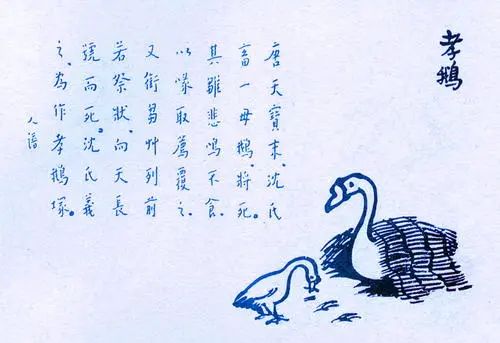 孝鵝
唐天寶末、沈氏
畜一母鵝、將死。
其雛悲鳴不食、
以喙取薦覆之、
又銜芻艸列前
若祭狀、向天長
號而死。沈氏義
之、為作孝鵝塚。
人譜